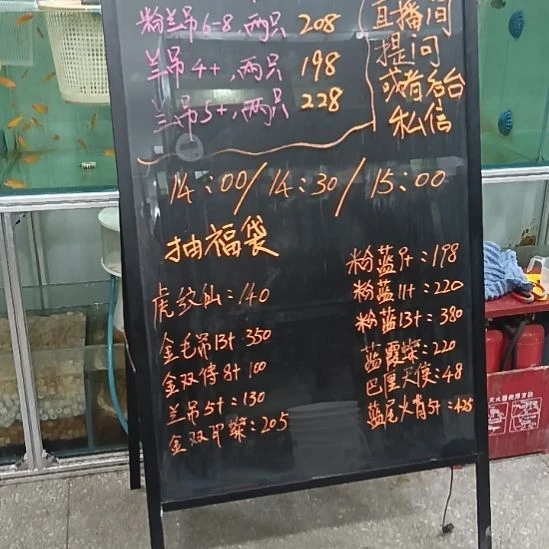 粉兰吊6-8，两只 208
兰吊4+，两只 198
兰吊5+，两只 228
直播间
提问
或者后台
私信
14:00/14:30/15:00
抽福袋
虎纹仙：140
金毛吊13+ 350
金双侍8+ 100
兰吊5+：130
金双印蝶：205
粉蓝9+：198
粉蓝11+：220
粉蓝13+：380
蓝霞蝶：220
巴里天使：48
蓝尾火背5+：425
灭火器使用方法